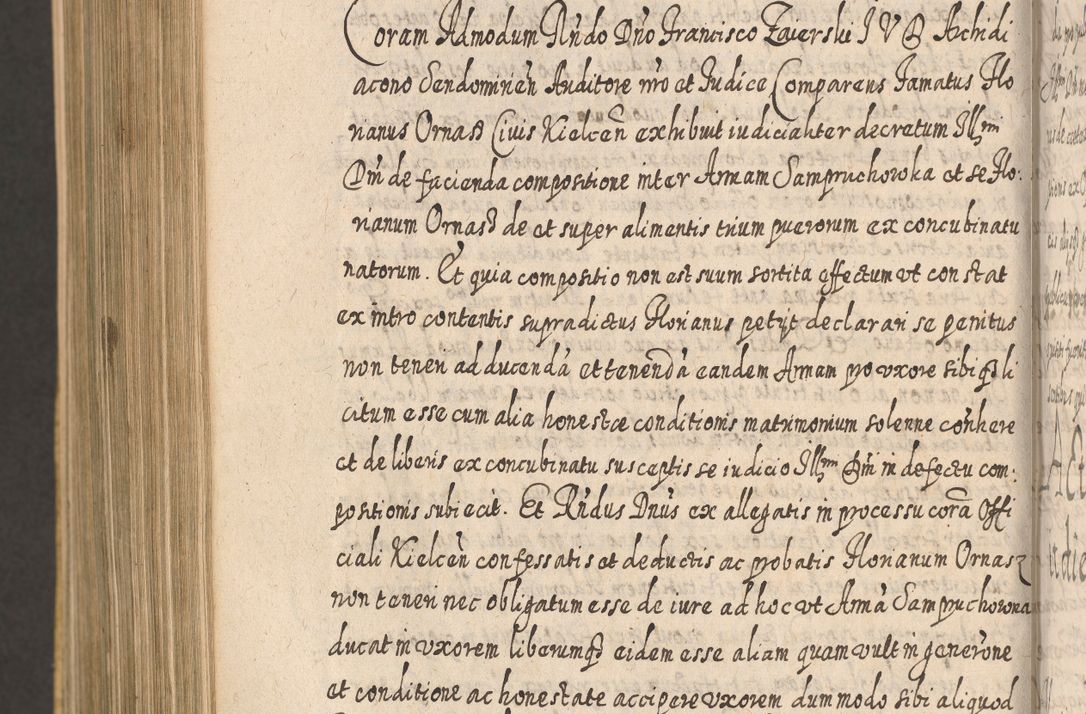 Coram Admodum Rndo Dno Francisco Zaierski I V D Archidi
acono Sendomirien Auditore nro et Iudice Comparens Famatus Flo
rianus Ornasz Civis Kielcen exhibuit iudicialiter decretum Illm
Dni de facienda compositione inter Annam Sampruchowka et se Flo:
rianum Ornasz de et super alimentis trium puerorum ex concubinatu
natorum. Et quia compositio non est suum sortita effectum ut constat
ex intro contentis supradictus Florianus petijt declarari se penitus
non teneri ad ducendã et tenendã eandem Annam pro uxore sibi q li
citum esse cum alia honestæ conditionis matrimonium solenne conhere
et de liberis ex concubinatu susceptis se iudicio Illm Dni in defectu com:
positionis subiecit. Et Rndus Dnus ex allegatis in processu corã Offi
ciali Kielcen confessatis et deductis ac probatis Florianum Ornasz
non teneri nec obligatum esse de iure ad hoc ut Annã Sampruchowna
ducat in uxorem liberumq eidem esse aliam quam vult in generone
et conditione ac honestate accipere uxorem dummodo sibi aliquod